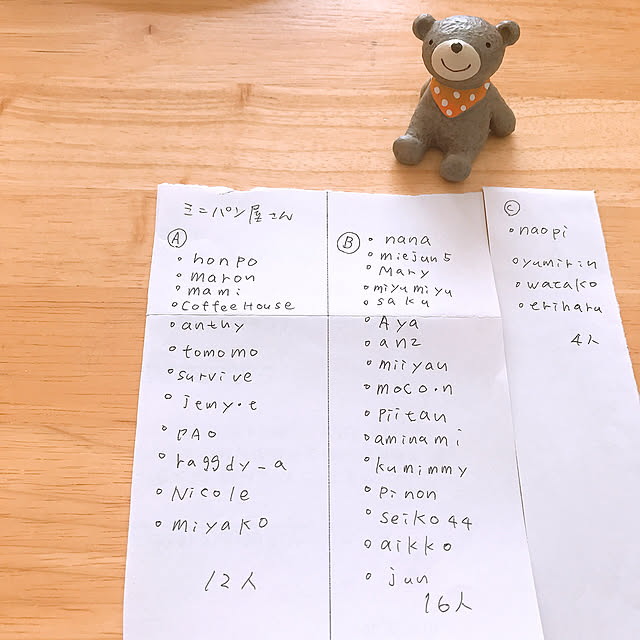 ミニパン屋さん
A
honpo
maron
mami
CoffeeHouse
anthy
tomomo
survive
jemy・e
PAO
raggdy_a
Nicole
miyako
12人
B
nana
miejun5
Mary
miyumiyu
saku
Aya
anz
miiyau
moco・n
piitan
aminami
kumimmy
pinon
seiko44
aikko
jun
16人
C
naopi
yumirin
watako
eriharu
4人